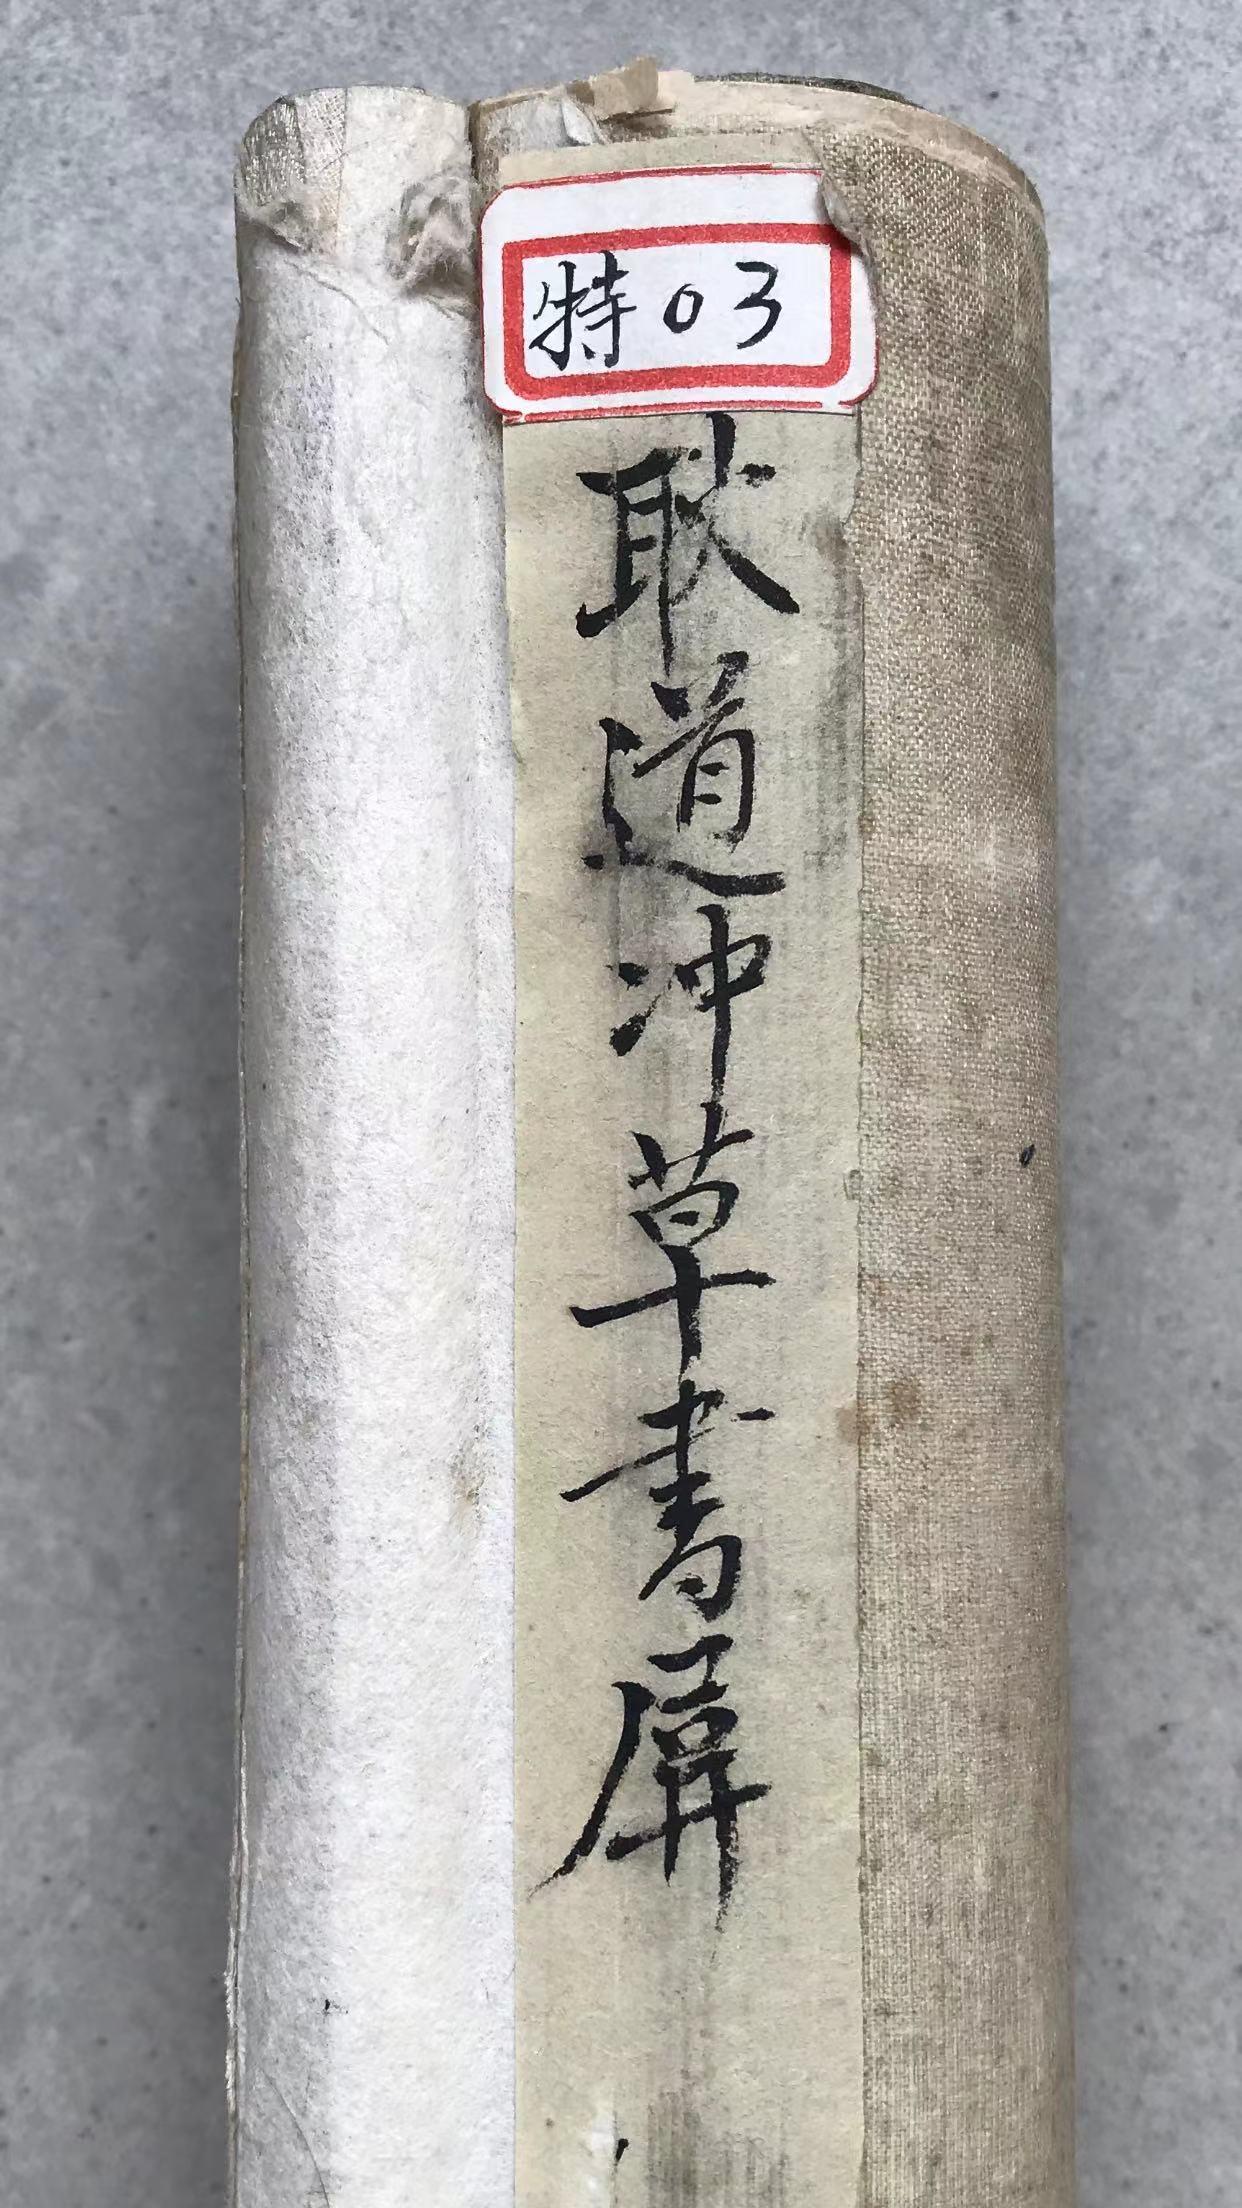 特03
耿道冲草書屏